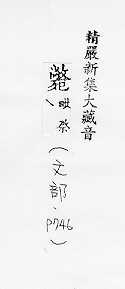 精嚴新集大藏音
斃 毗祭
(文部.P746)